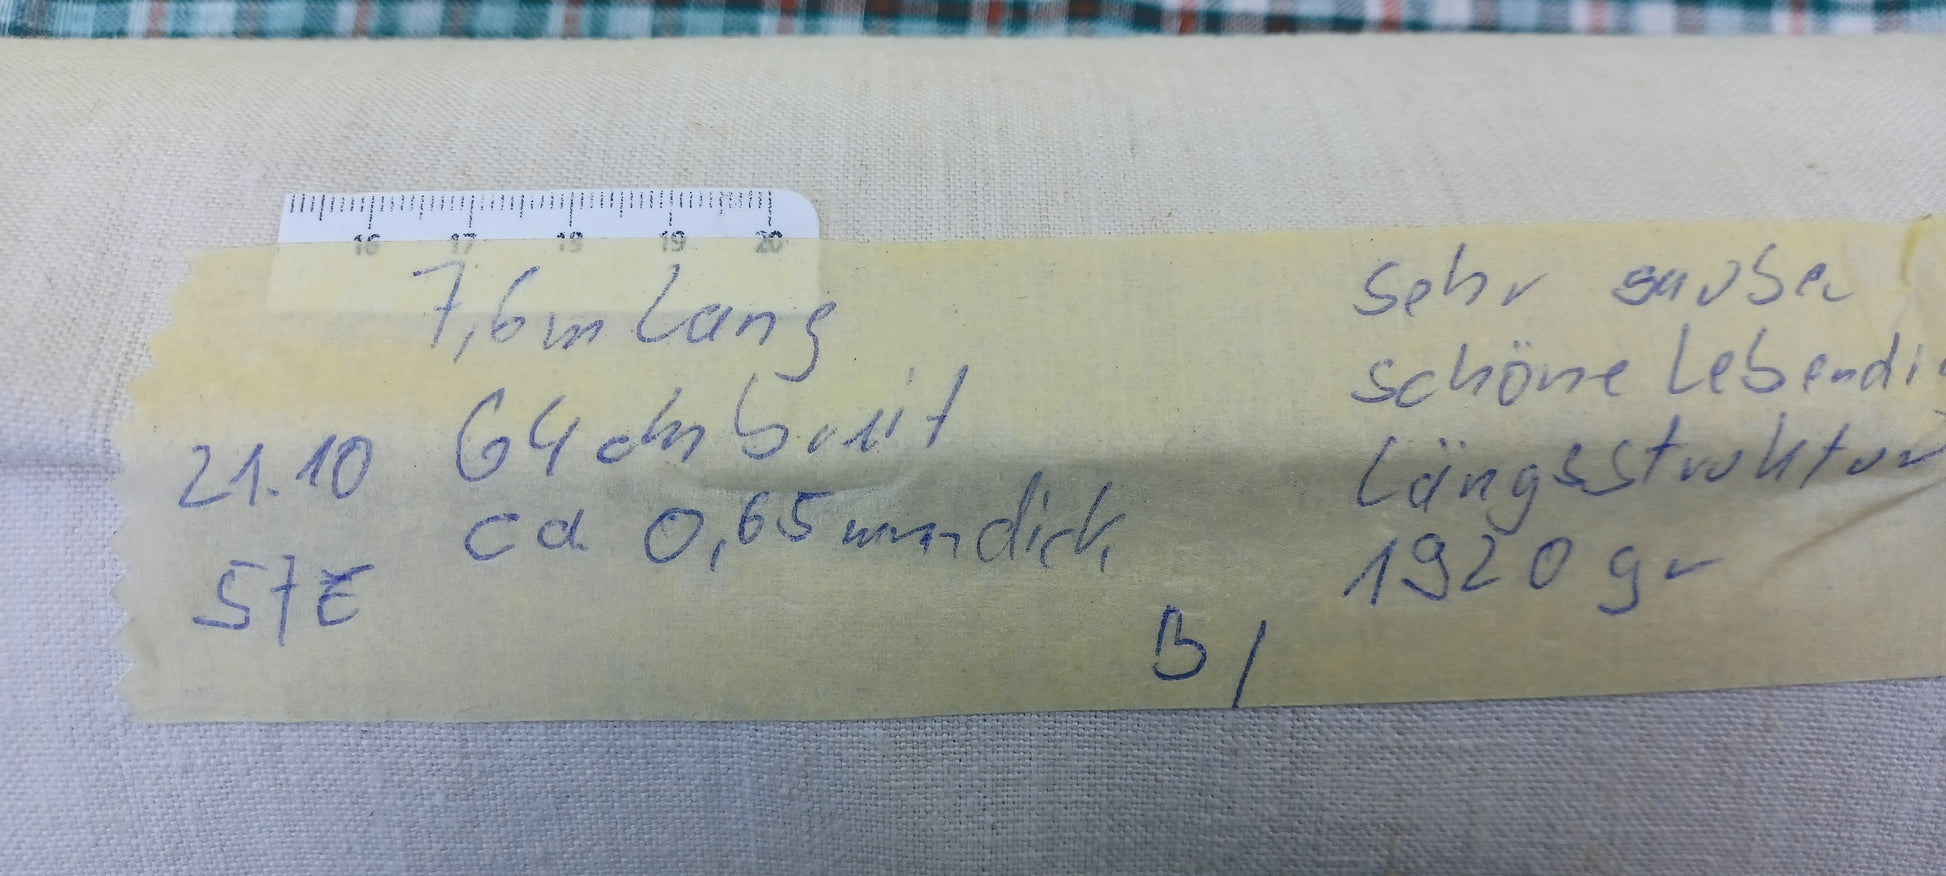 16 17 18 19 20
7,6m lang
64 cm breit
ca 0,65 mm dick
21.10
57€
sehr sauber
schöne Lebendig
Längsstruktur
1920 gr
B/